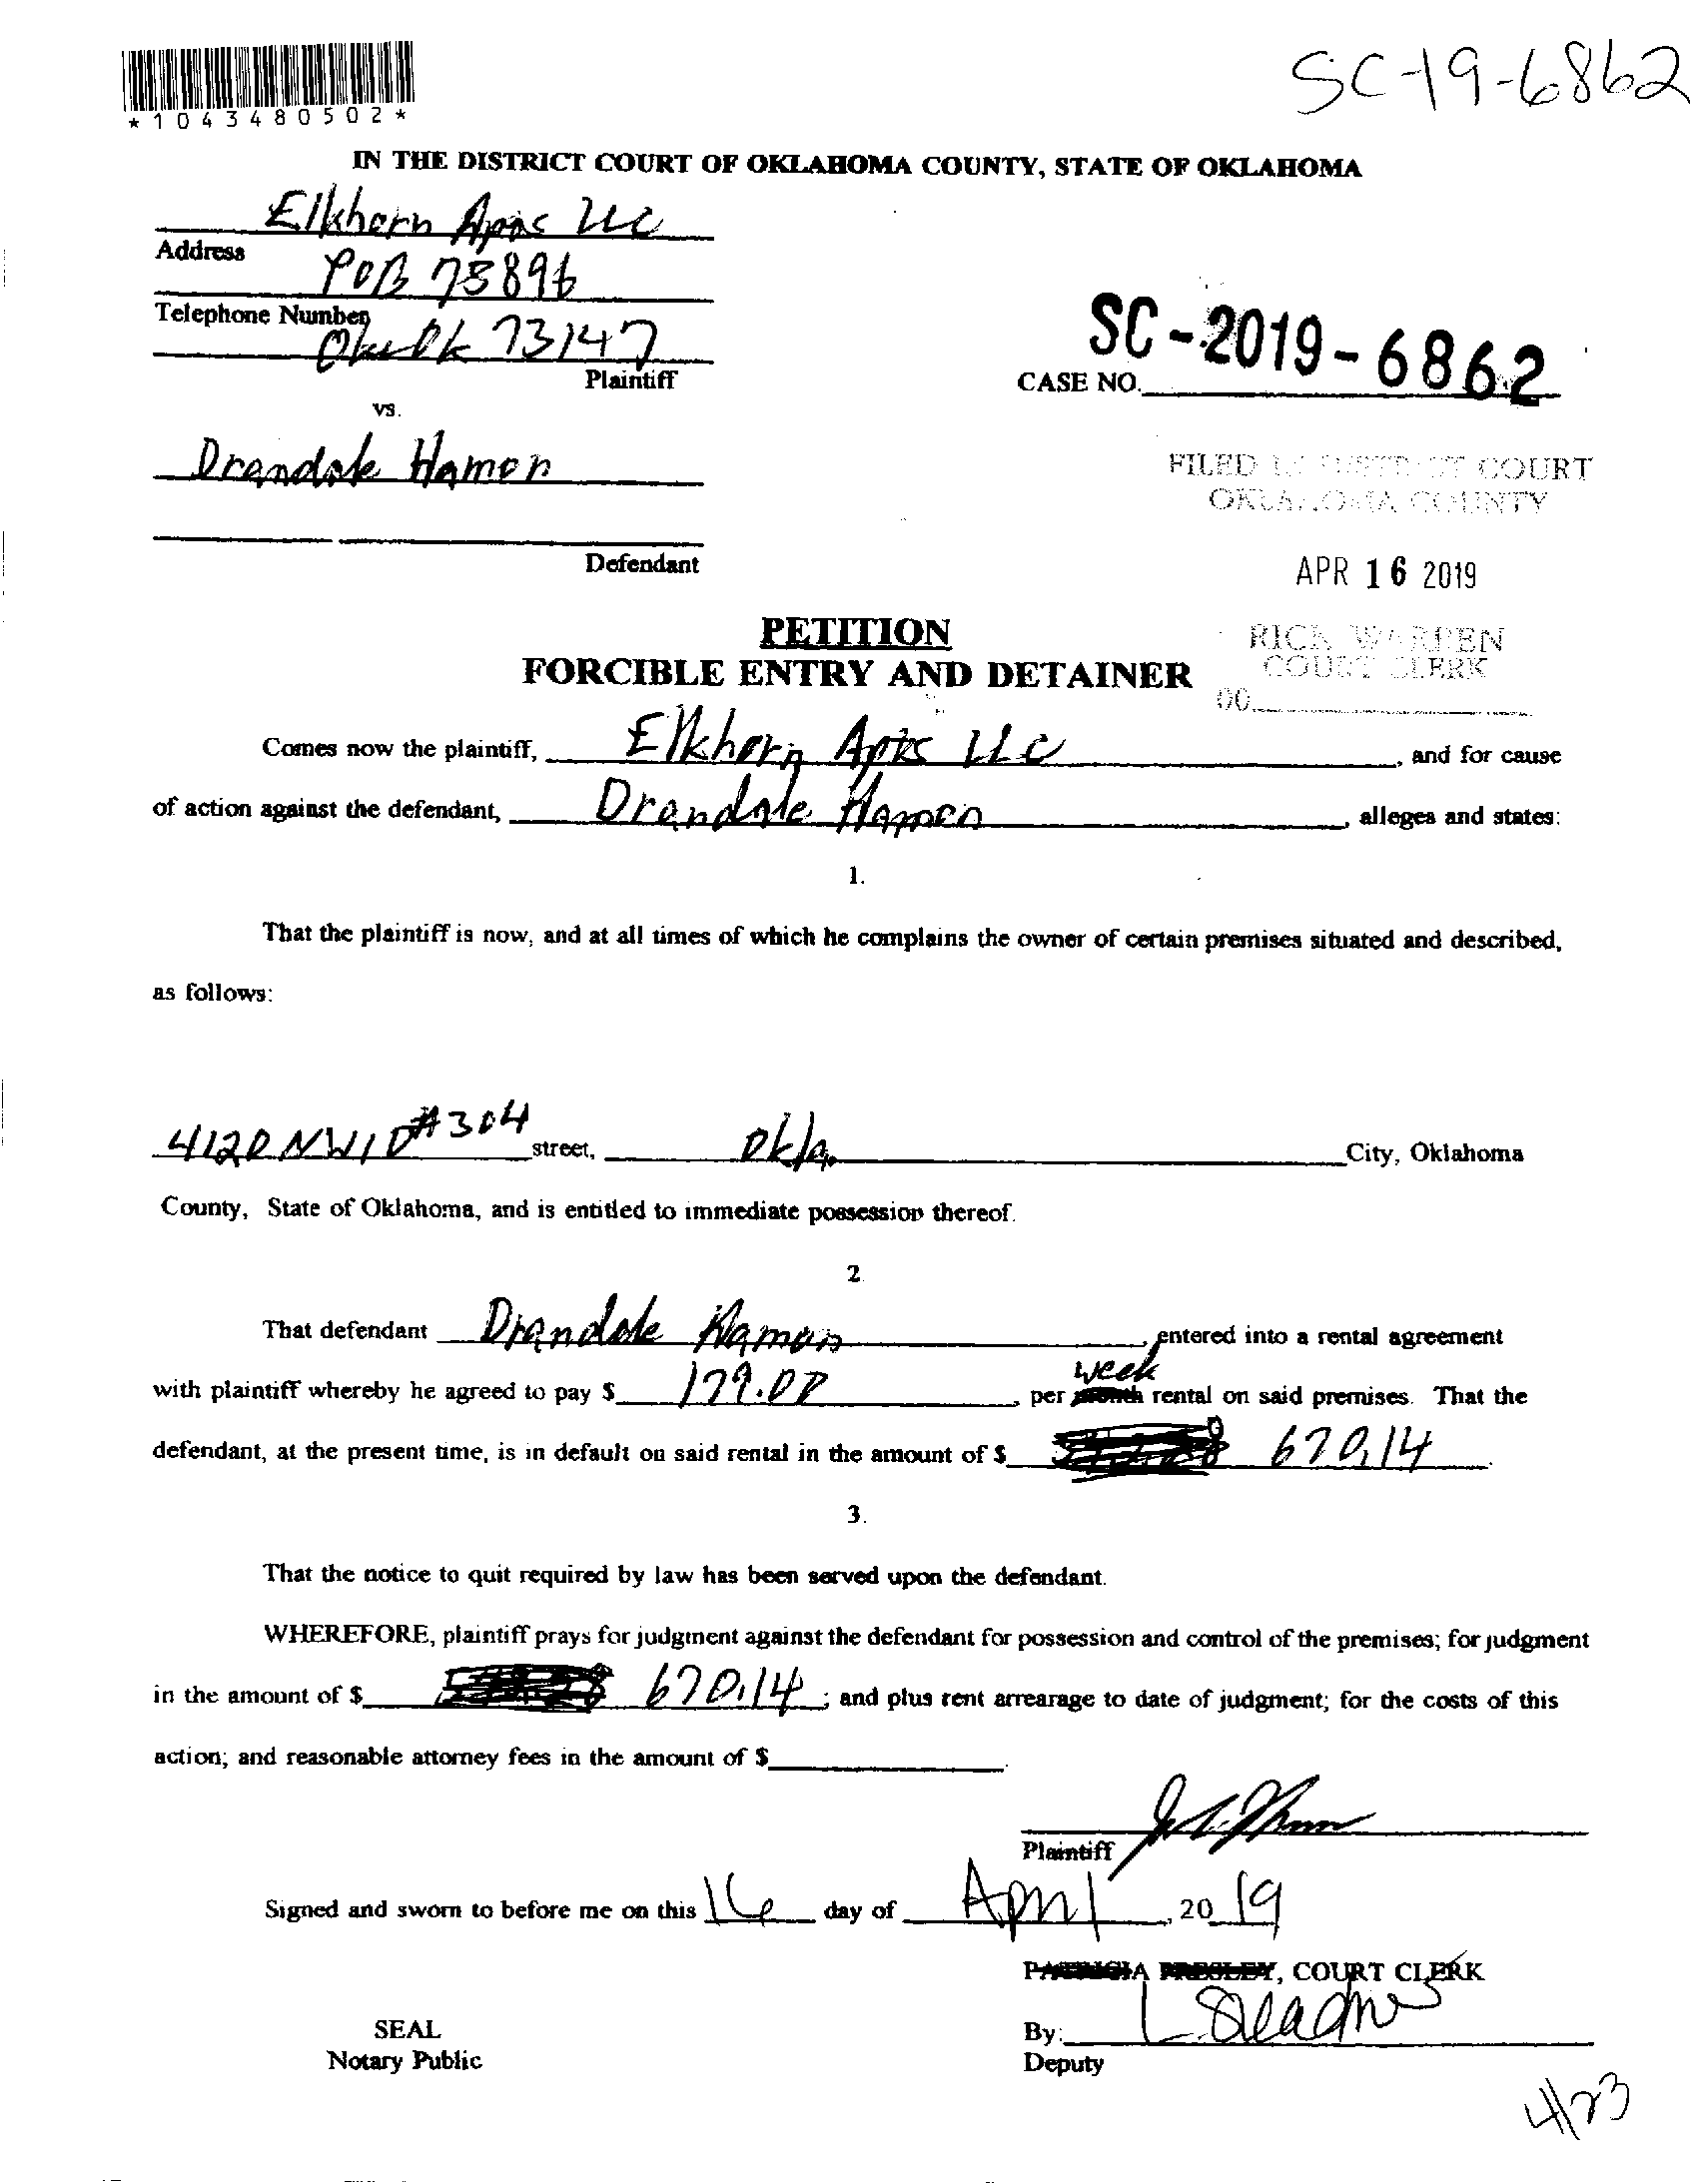 SC-19-6862
*1043480502*
IN THE DISTRICT COURT OF OKLAHOMA COUNTY, STATE OF OKLAHOMA
Elkhorn Apts LLC
Address
POB 75896
Telephone Number
Okc Ok 73147
Plaintiff
SC-2019-6862
CASE NO.
vs.
Drandale Hamon
FILED IN DISTRICT COURT
OKLAHOMA COUNTY
Defendant
APR 16 2019
PETITION
RICK WARREN
COURT CLERK
FORCIBLE ENTRY AND DETAINER
Comes now the plaintiff, Elkhorn Apts LLC, and for cause
of action against the defendant, Drandale Hamon, alleges and states:
1.
That the plaintiff is now, and at all times of which he complains the owner of certain premises situated and described,
as follows:
4120 NW10 #304 street, Okla. City, Oklahoma
County, State of Oklahoma, and is entitled to immediate possession thereof.
2.
That defendant Drandale Hamon, entered into a rental agreement
week
with plaintiff whereby he agreed to pay $ 179.00, per month rental on said premises. That the
defendant, at the present time, is in default on said rental in the amount of $ 670.14.
3.
That the notice to quit required by law has been served upon the defendant.
WHEREFORE, plaintiff prays for judgment against the defendant for possession and control of the premises; for judgment
in the amount of $ 670.14; and plus rent arrearage to date of judgment; for the costs of this
action; and reasonable attorney fees in the amount of $
Plaintiff
Signed and sworn to before me on this 16 day of April, 2019
PATRICIA PRESLEY, COURT CLERK
SEAL
By:
Notary Public
Deputy
4/23